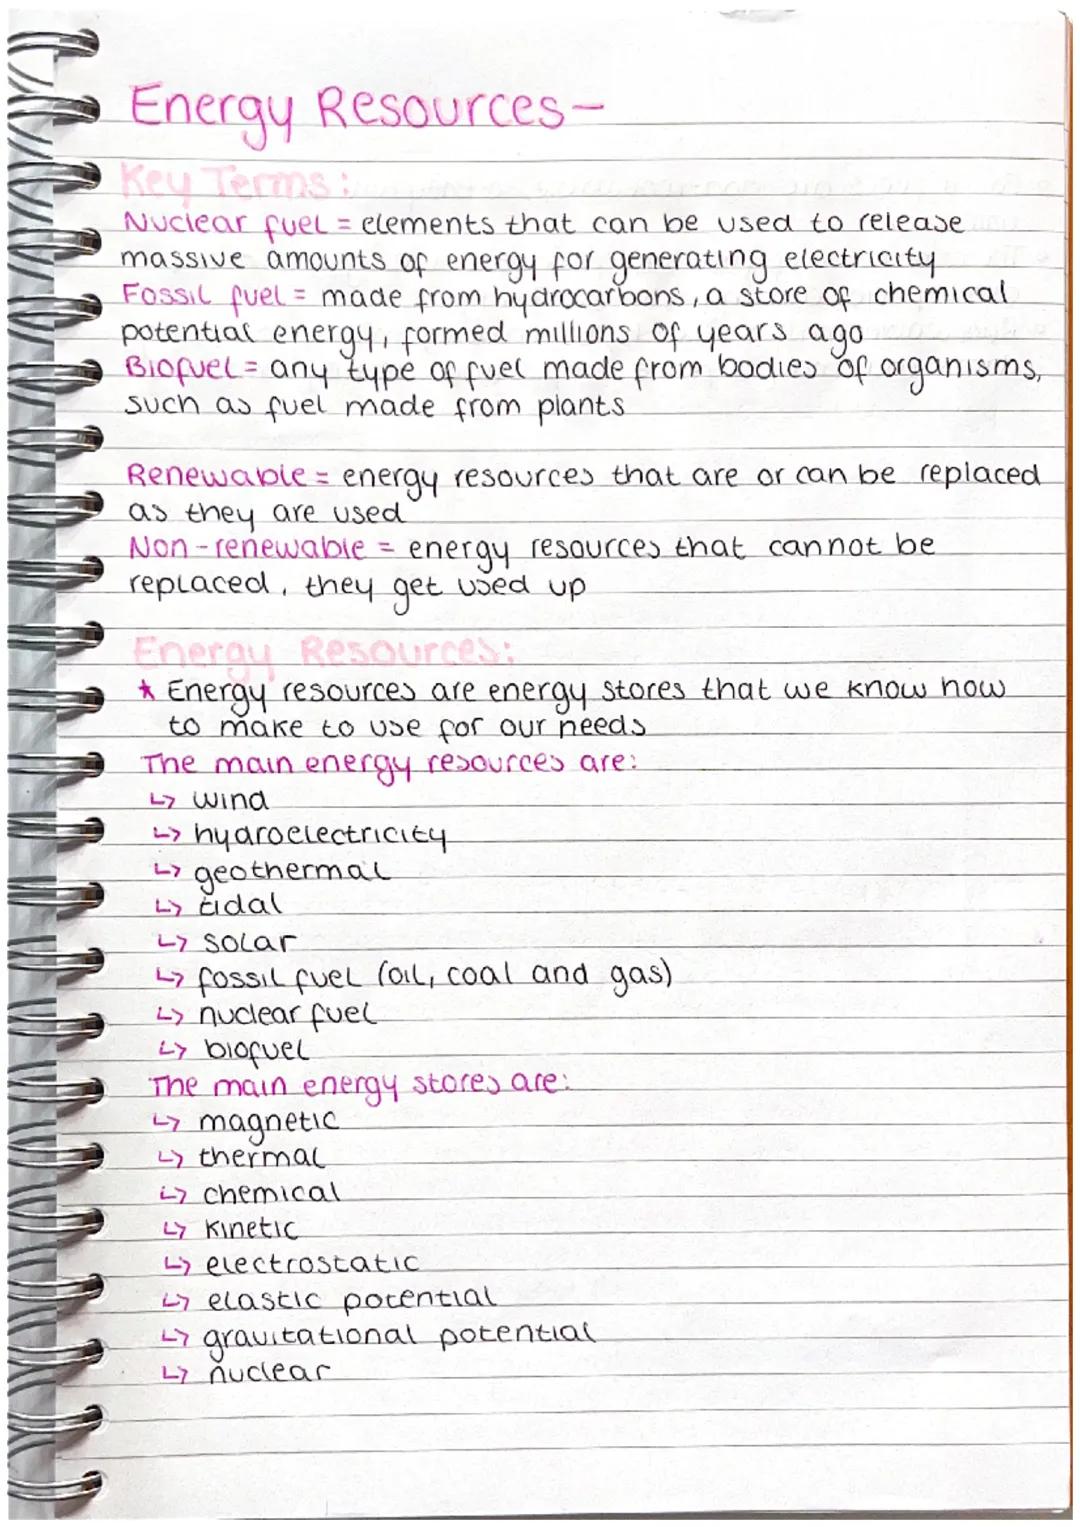 Energy Resources-
Key Terms:
Nuclear fuel = elements that can be used to release
massive amounts of energy for generating electricity
Fossil fuel = made from hydrocarbons, a store of chemical
potential energy, formed millions of years ago
Biofuel = any type of fuel made from bodies of organisms,
such as fuel made from plants
Renewable = energy resources that are or can be replaced
as they are used
Non-renewable = energy resources that cannot be
replaced, they get used up
Energy Resources:
* Energy resources are energy stores that we know how
to make to use for our needs
The main energy resources are:
↳ wind
↳ hydroelectricity
↳ geothermal
↳ tidal
↳ solar
↳ fossil fuel (oil, coal and gas)
↳ nuclear fuel
↳ biofuel
The main energy stores are:
↳ magnetic
↳ thermal
↳ chemical
↳ kinetic
↳ electrostatic
↳ elastic potential
↳ gravitational potential
↳ nuclear